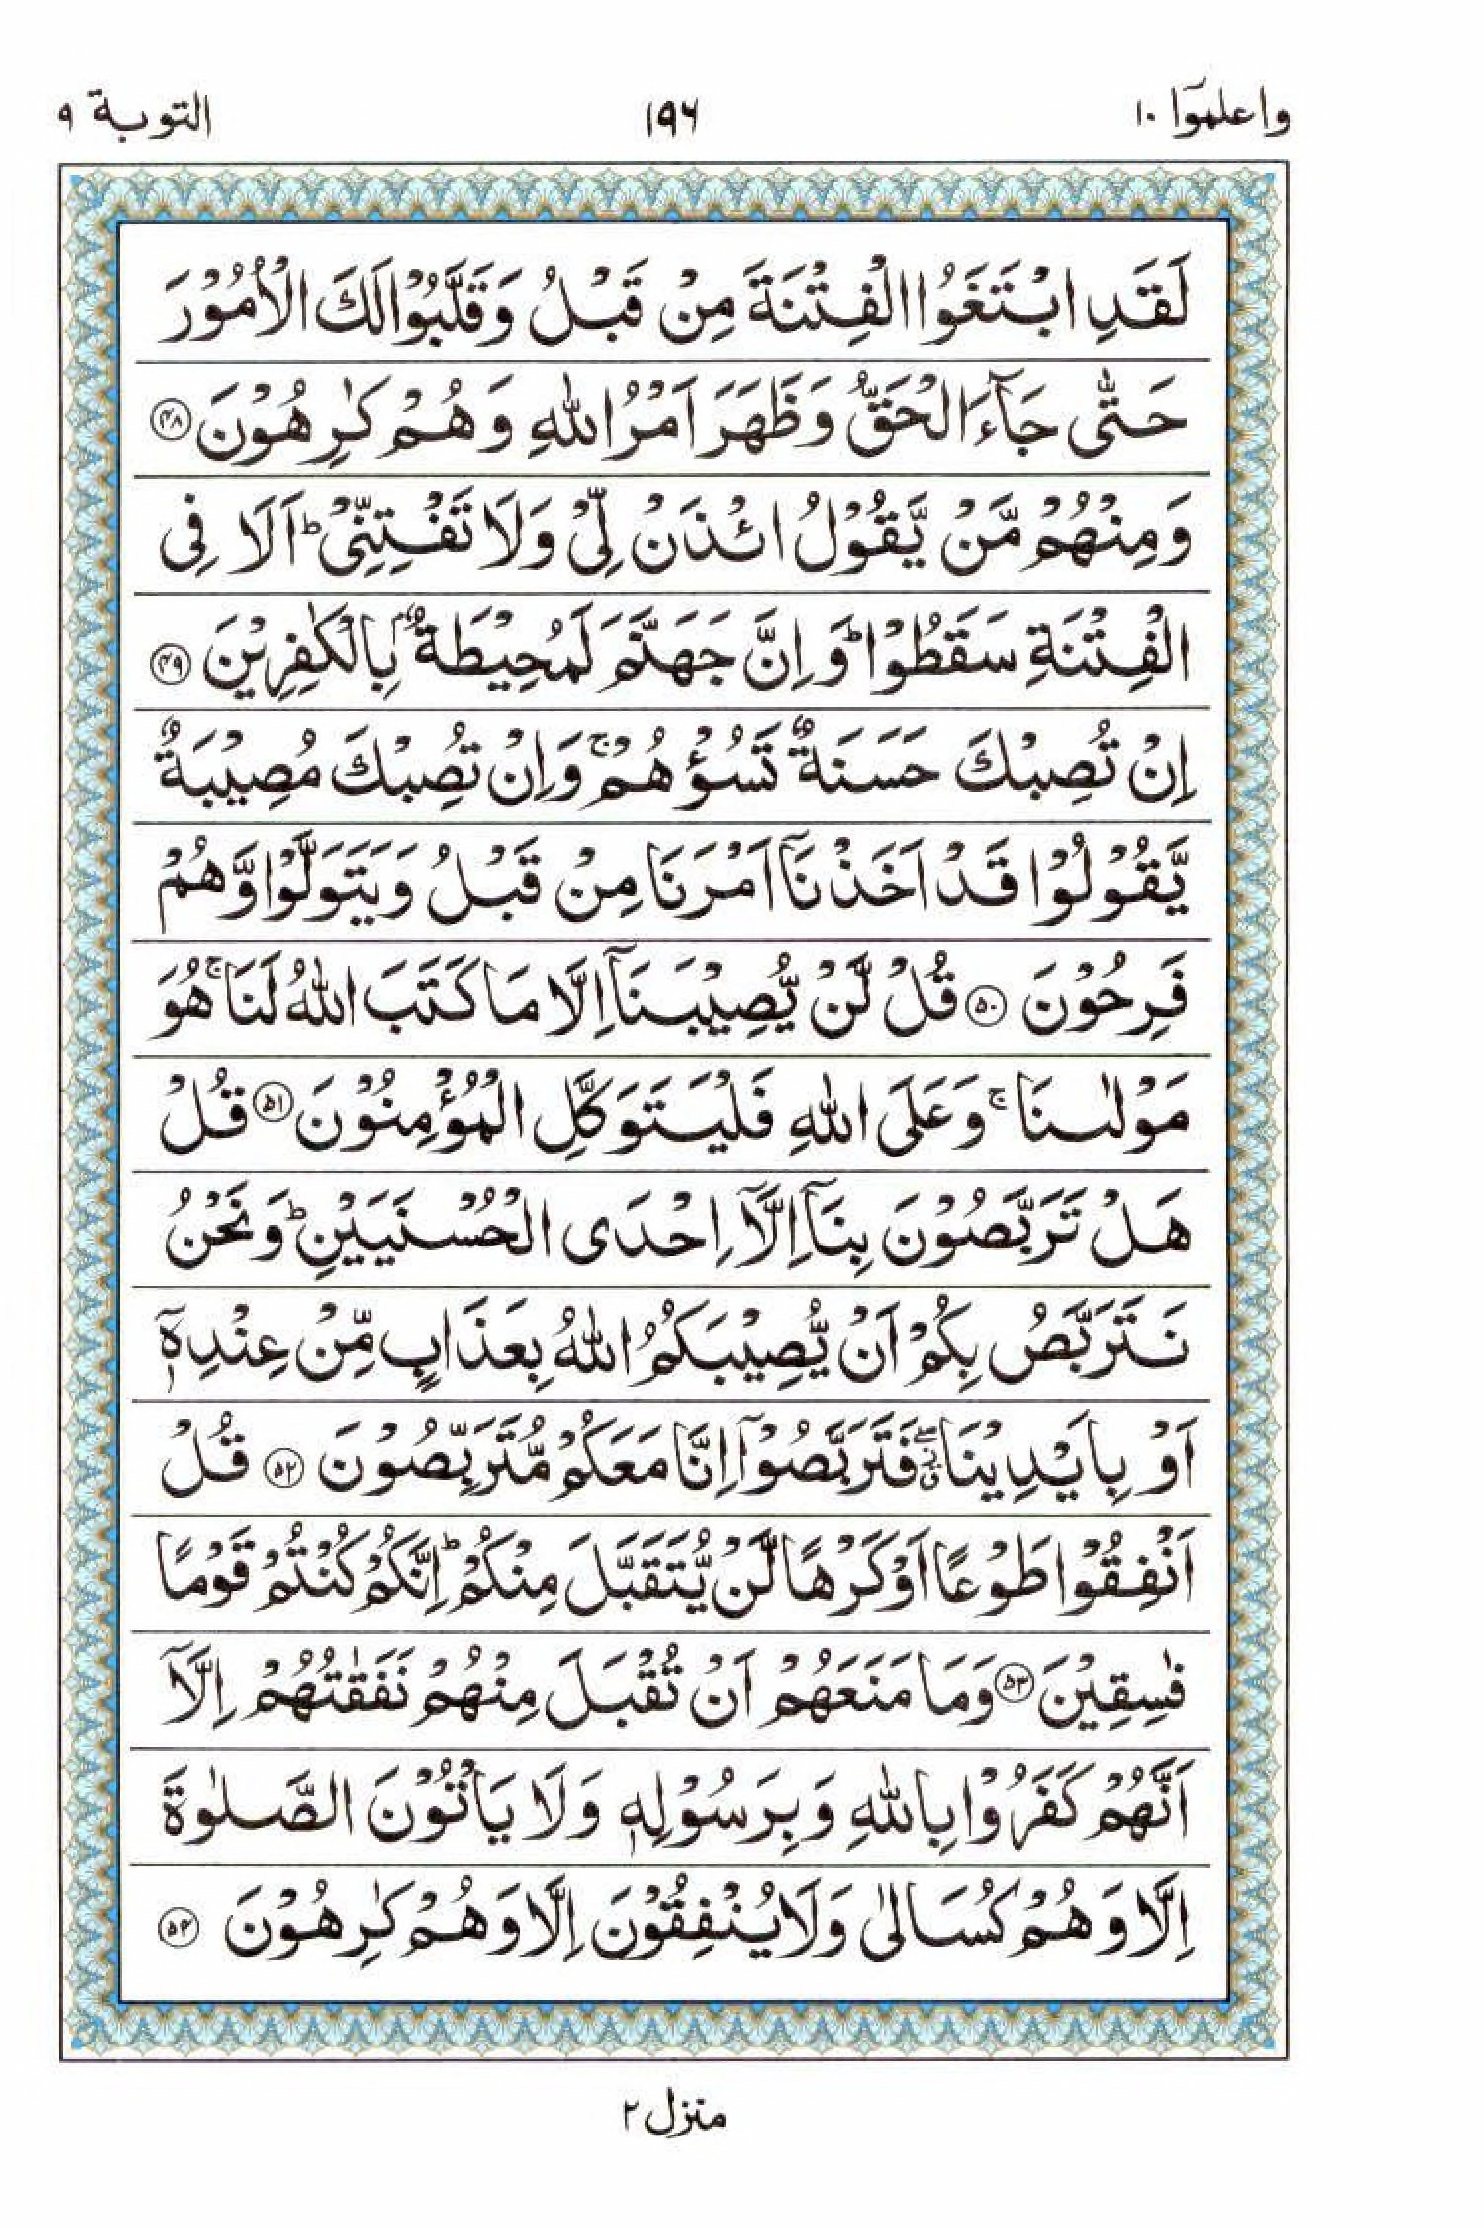 واعلموٓا ١٠
١٩٦
التوبة ٩
لَقَدِ ابْتَغَوُا الْفِتْنَةَ مِنْ قَبْلُ وَقَلَّبُوْا لَكَ الْاُمُوْرَ
حَتّٰى جَآءَ الْحَقُّ وَظَهَرَ اَمْرُ اللّٰهِ وَهُمْ كٰرِهُوْنَ ﴿۴۸﴾
وَمِنْهُمْ مَّنْ يَّقُوْلُ ائْذَنْ لِّىْ وَلَا تَفْتِنِّىْ ؕ اَلَا فِى
الْفِتْنَةِ سَقَطُوْا ؕ وَاِنَّ جَهَنَّمَ لَمُحِيْطَةٌۢ بِالْكٰفِرِيْنَ ﴿۴۹﴾
اِنْ تُصِبْكَ حَسَنَةٌ تَسُؤْهُمْ ۚ وَاِنْ تُصِبْكَ مُصِيْبَةٌ
يَّقُوْلُوْا قَدْ اَخَذْنَآ اَمْرَنَا مِنْ قَبْلُ وَيَتَوَلَّوْا وَّهُمْ
فَرِحُوْنَ ﴿۵۰﴾ قُلْ لَّنْ يُّصِيْبَنَآ اِلَّا مَا كَتَبَ اللّٰهُ لَنَا ۚ هُوَ
مَوْلٰىنَا ۚ وَعَلَى اللّٰهِ فَلْيَتَوَكَّلِ الْمُؤْمِنُوْنَ ﴿۵۱﴾ قُلْ
هَلْ تَرَبَّصُوْنَ بِنَآ اِلَّآ اِحْدَى الْحُسْنَيَيْنِ ؕ وَنَحْنُ
نَتَرَبَّصُ بِكُمْ اَنْ يُّصِيْبَكُمُ اللّٰهُ بِعَذَابٍ مِّنْ عِنْدِهٖٓ
اَوْ بِاَيْدِيْنَا ۖ ؗ فَتَرَبَّصُوْٓا اِنَّا مَعَكُمْ مُّتَرَبِّصُوْنَ ﴿۵۲﴾ قُلْ
اَنْفِقُوْا طَوْعًا اَوْ كَرْهًا لَّنْ يُّتَقَبَّلَ مِنْكُمْ ؕ اِنَّكُمْ كُنْتُمْ قَوْمًا
فٰسِقِيْنَ ﴿۵۳﴾ وَمَا مَنَعَهُمْ اَنْ تُقْبَلَ مِنْهُمْ نَفَقٰتُهُمْ اِلَّآ
اَنَّهُمْ كَفَرُوْا بِاللّٰهِ وَبِرَسُوْلِهٖ وَلَا يَاْتُوْنَ الصَّلٰوةَ
اِلَّا وَهُمْ كُسَالٰى وَلَا يُنْفِقُوْنَ اِلَّا وَهُمْ كٰرِهُوْنَ ﴿۵۴﴾
منزل ٢